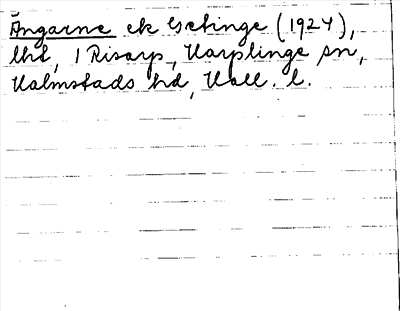 Ängarne ek Getinge (1924),
lhl, 1 Risarp, Harplinge sn,
Halmstads hd, Hall. l.